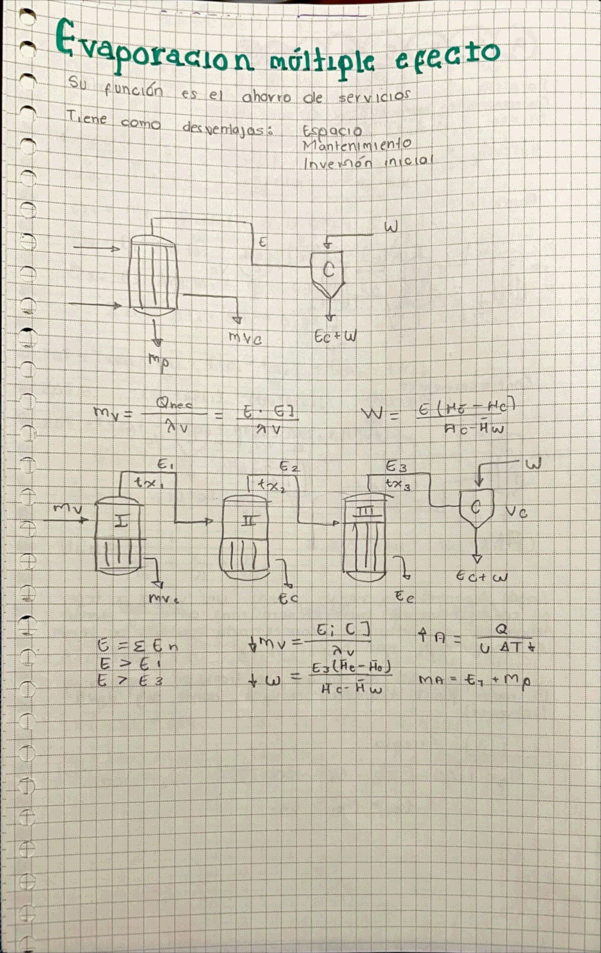 Evaporacion múltiple efecto
Su función es el ahorro de servicios
Tiene como desventajas: Espacio
Mantenimiento
Inversión inicial
W
E
C
mvc
Ec+W
mp
mv = Qnec / λv = E · E] / λv
W = E (HE - Hc) / Hc - H̄w
E1
E2
E3
W
tx1
tx2
tx3
mv
I
II
III
C
Vc
mvc
Ec
Ec
Ec+w
E = Σ En
E > E1
E > E3
↓mv = Ei [] / λv
↓ w = E3(He - Ho) / Hc - H̄w
↑ A = Q / U ΔT t
MA = ET + mp